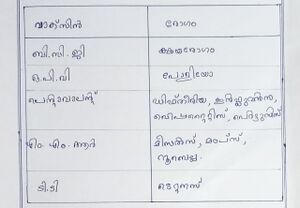 വാക്സിൻ രോഗം
ബി.സി.ജി ക്ഷയരോഗം
ഒ.പി.വി പോളിയോ
പെന്റാവാലന്റ് ഡിഫ്തീരിയ, ഇൻഫ്ലുവൻസ,
ഹെപ്പറ്റൈറ്റിസ്, പെർട്ടുസിസ്
എം.എം.ആർ മീസൽസ്, മംപ്സ്,
റൂബെല്ല.
ടി.ടി ടെറ്റനസ്